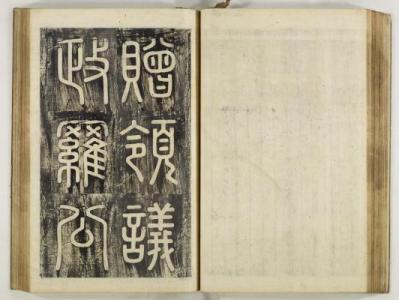 贈領議
政羅公